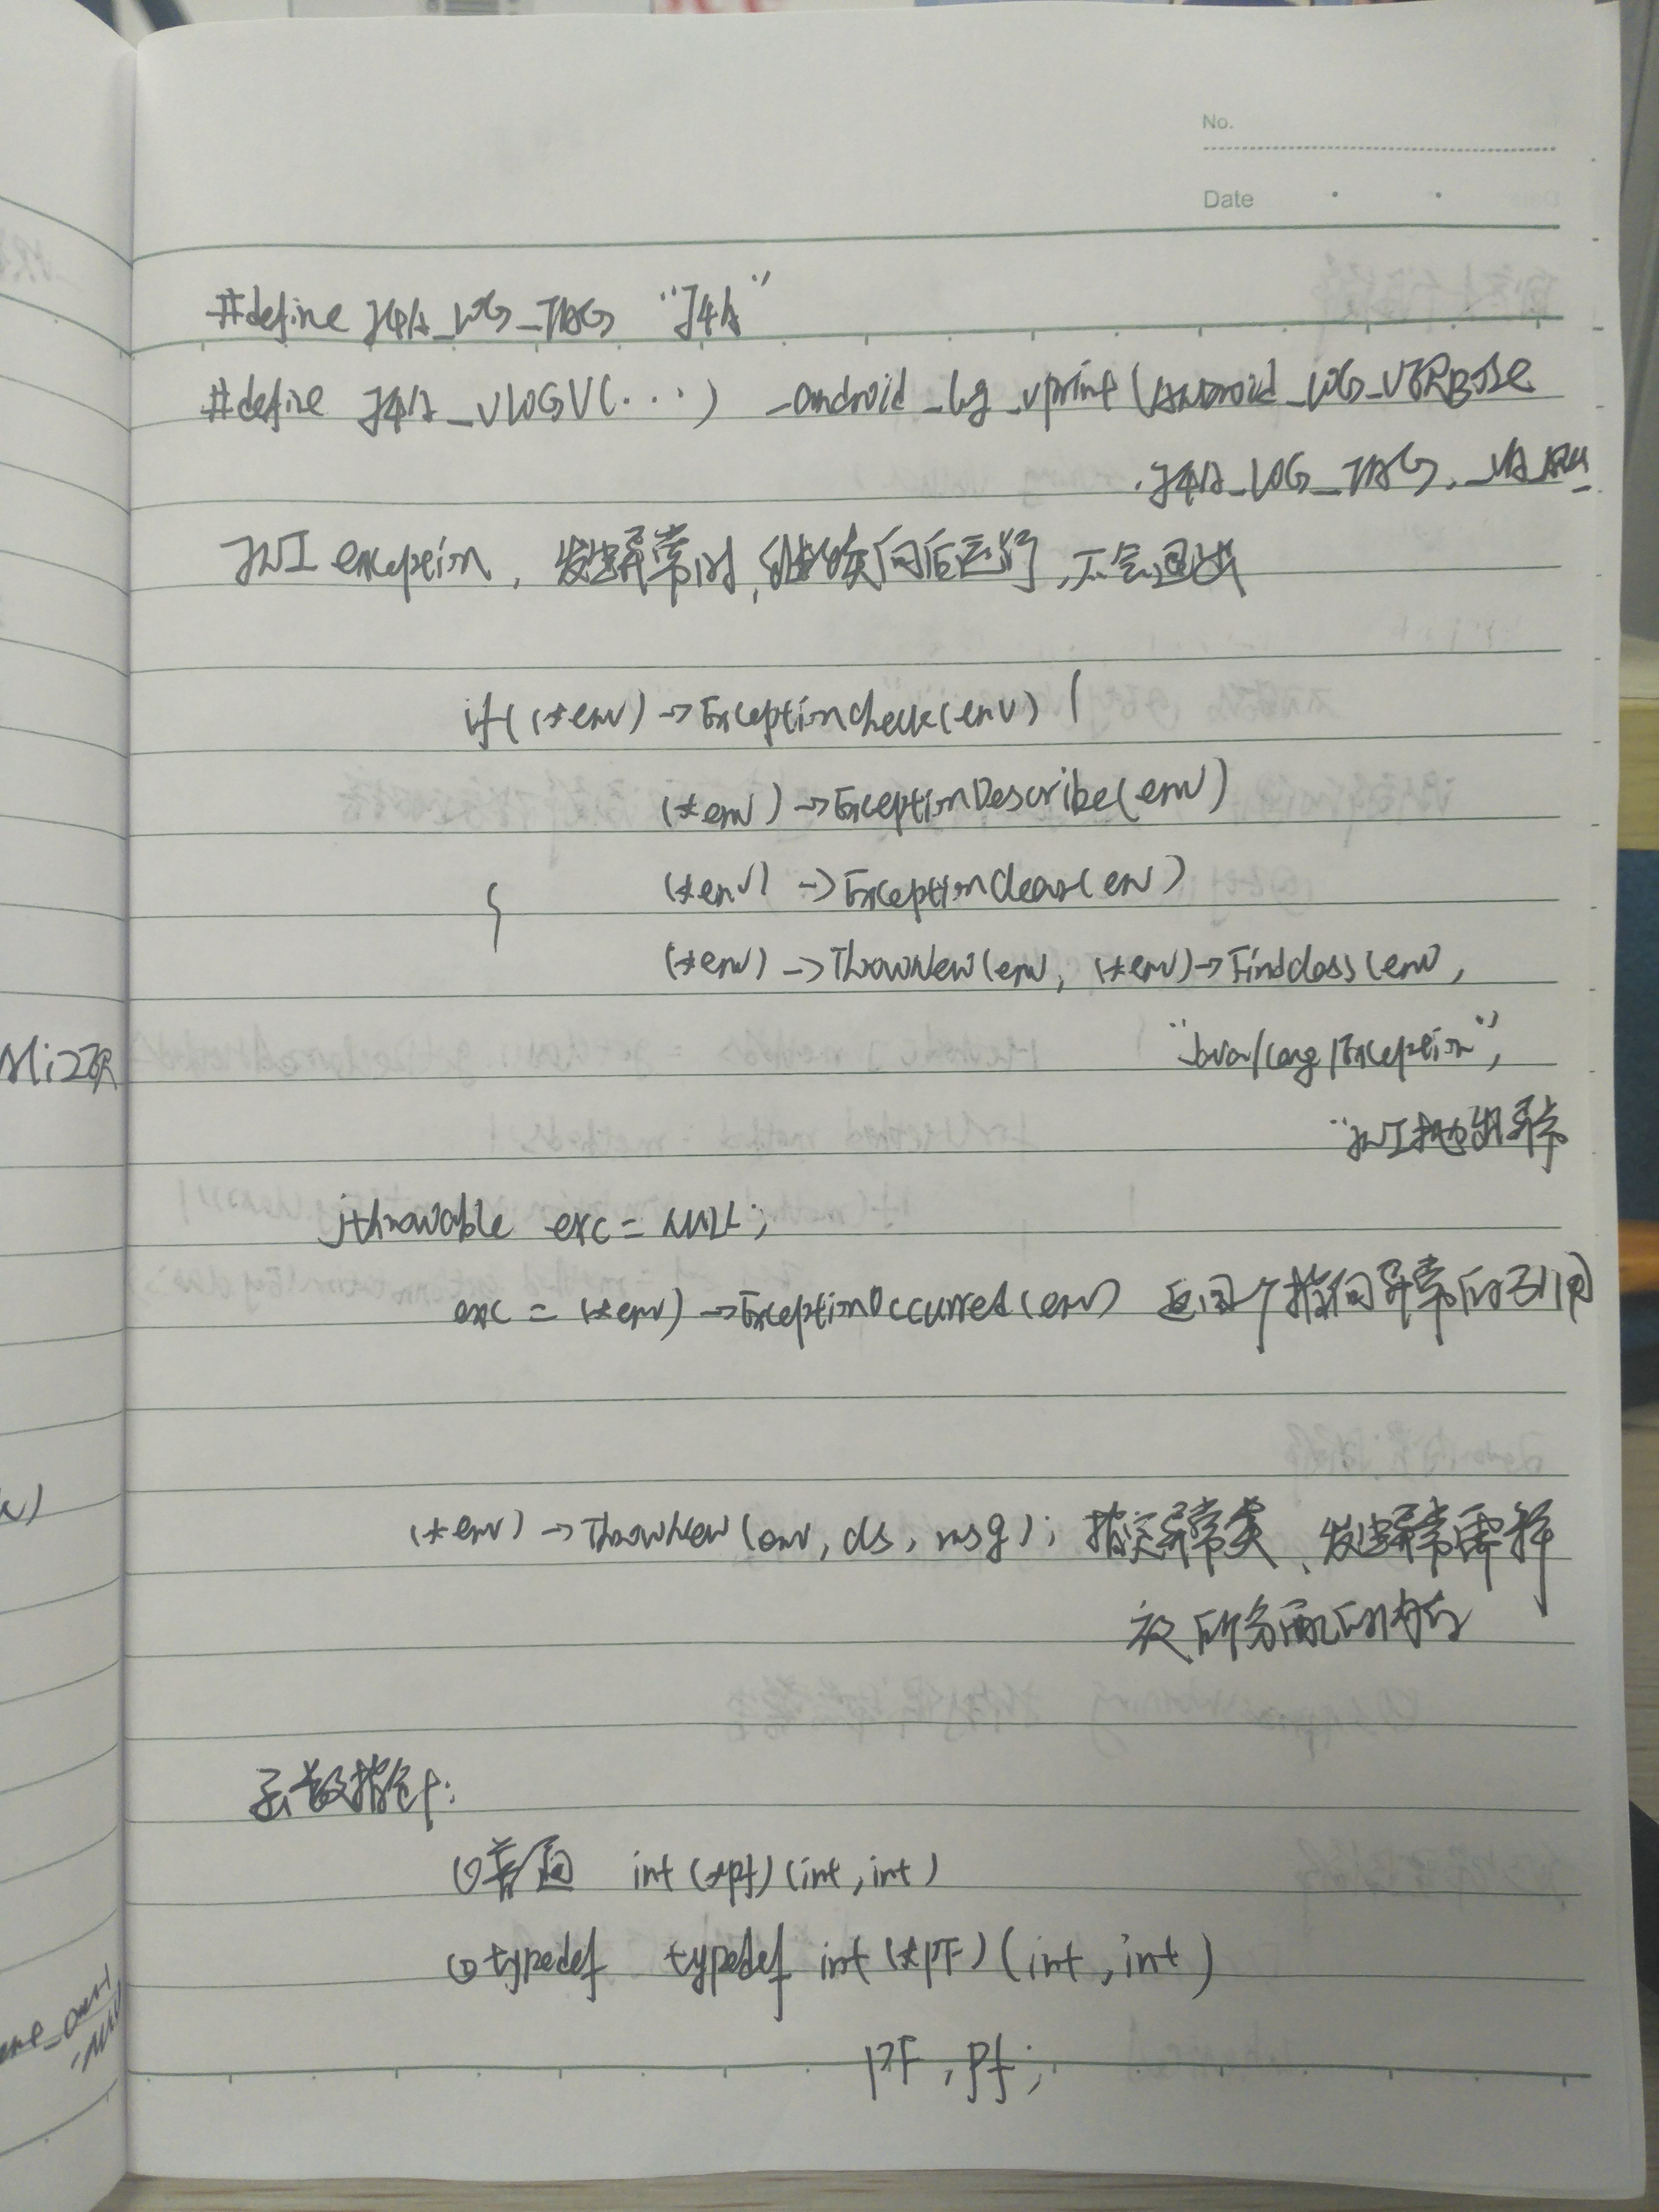 No.
Date
#define J4A_LOG_TAG "J4A"
#define J4A_VLOGV(...) _android_log_vprint(ANDROID_LOG_VERBOSE
, J4A_LOG_TAG, _VA_ARG_
JNI exception, 发生异常时, 继续向后运行, 不会退出
if((*env)->ExceptionCheck(env) {
(*env)->ExceptionDescribe(env)
(*env)->ExceptionClear(env)
}
(*env)->ThrowNew(env, (*env)->FindClass(env,
"java/lang/Exception",
MiZER
"JNI抛出异常
jthrowable exc = NULL;
exc = (*env)->ExceptionOccurred(env) 返回个指向异常的引用
(*env)->ThrowNew(env, cls, msg); 指定异常类、发生异常需释
放所分配的内存
函数指针:
①普通 int(*pf)(int,int)
②typedef typedef int(*PF)(int,int)
PF, pf;